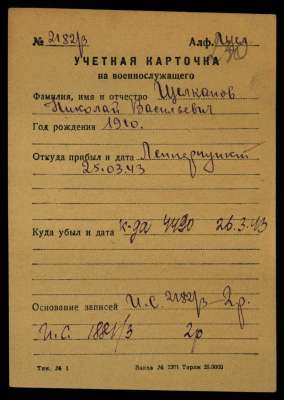 № 2182/3 Алф. Щел
УЧЕТНАЯ КАРТОЧКА
на военнослужащего
Фамилия, имя и отчество Щелканов
Николай Васильевич
Год рождения 1910.
Откуда прибыл и дата
25.03.43
Куда убыл и дата к-да 4490 26.3.43
Основание записей И.С. 2182/3 – 2р.
И.С. 1881/3 2р
Тип. № 1 Заказ № 1371 Тираж 25.0000